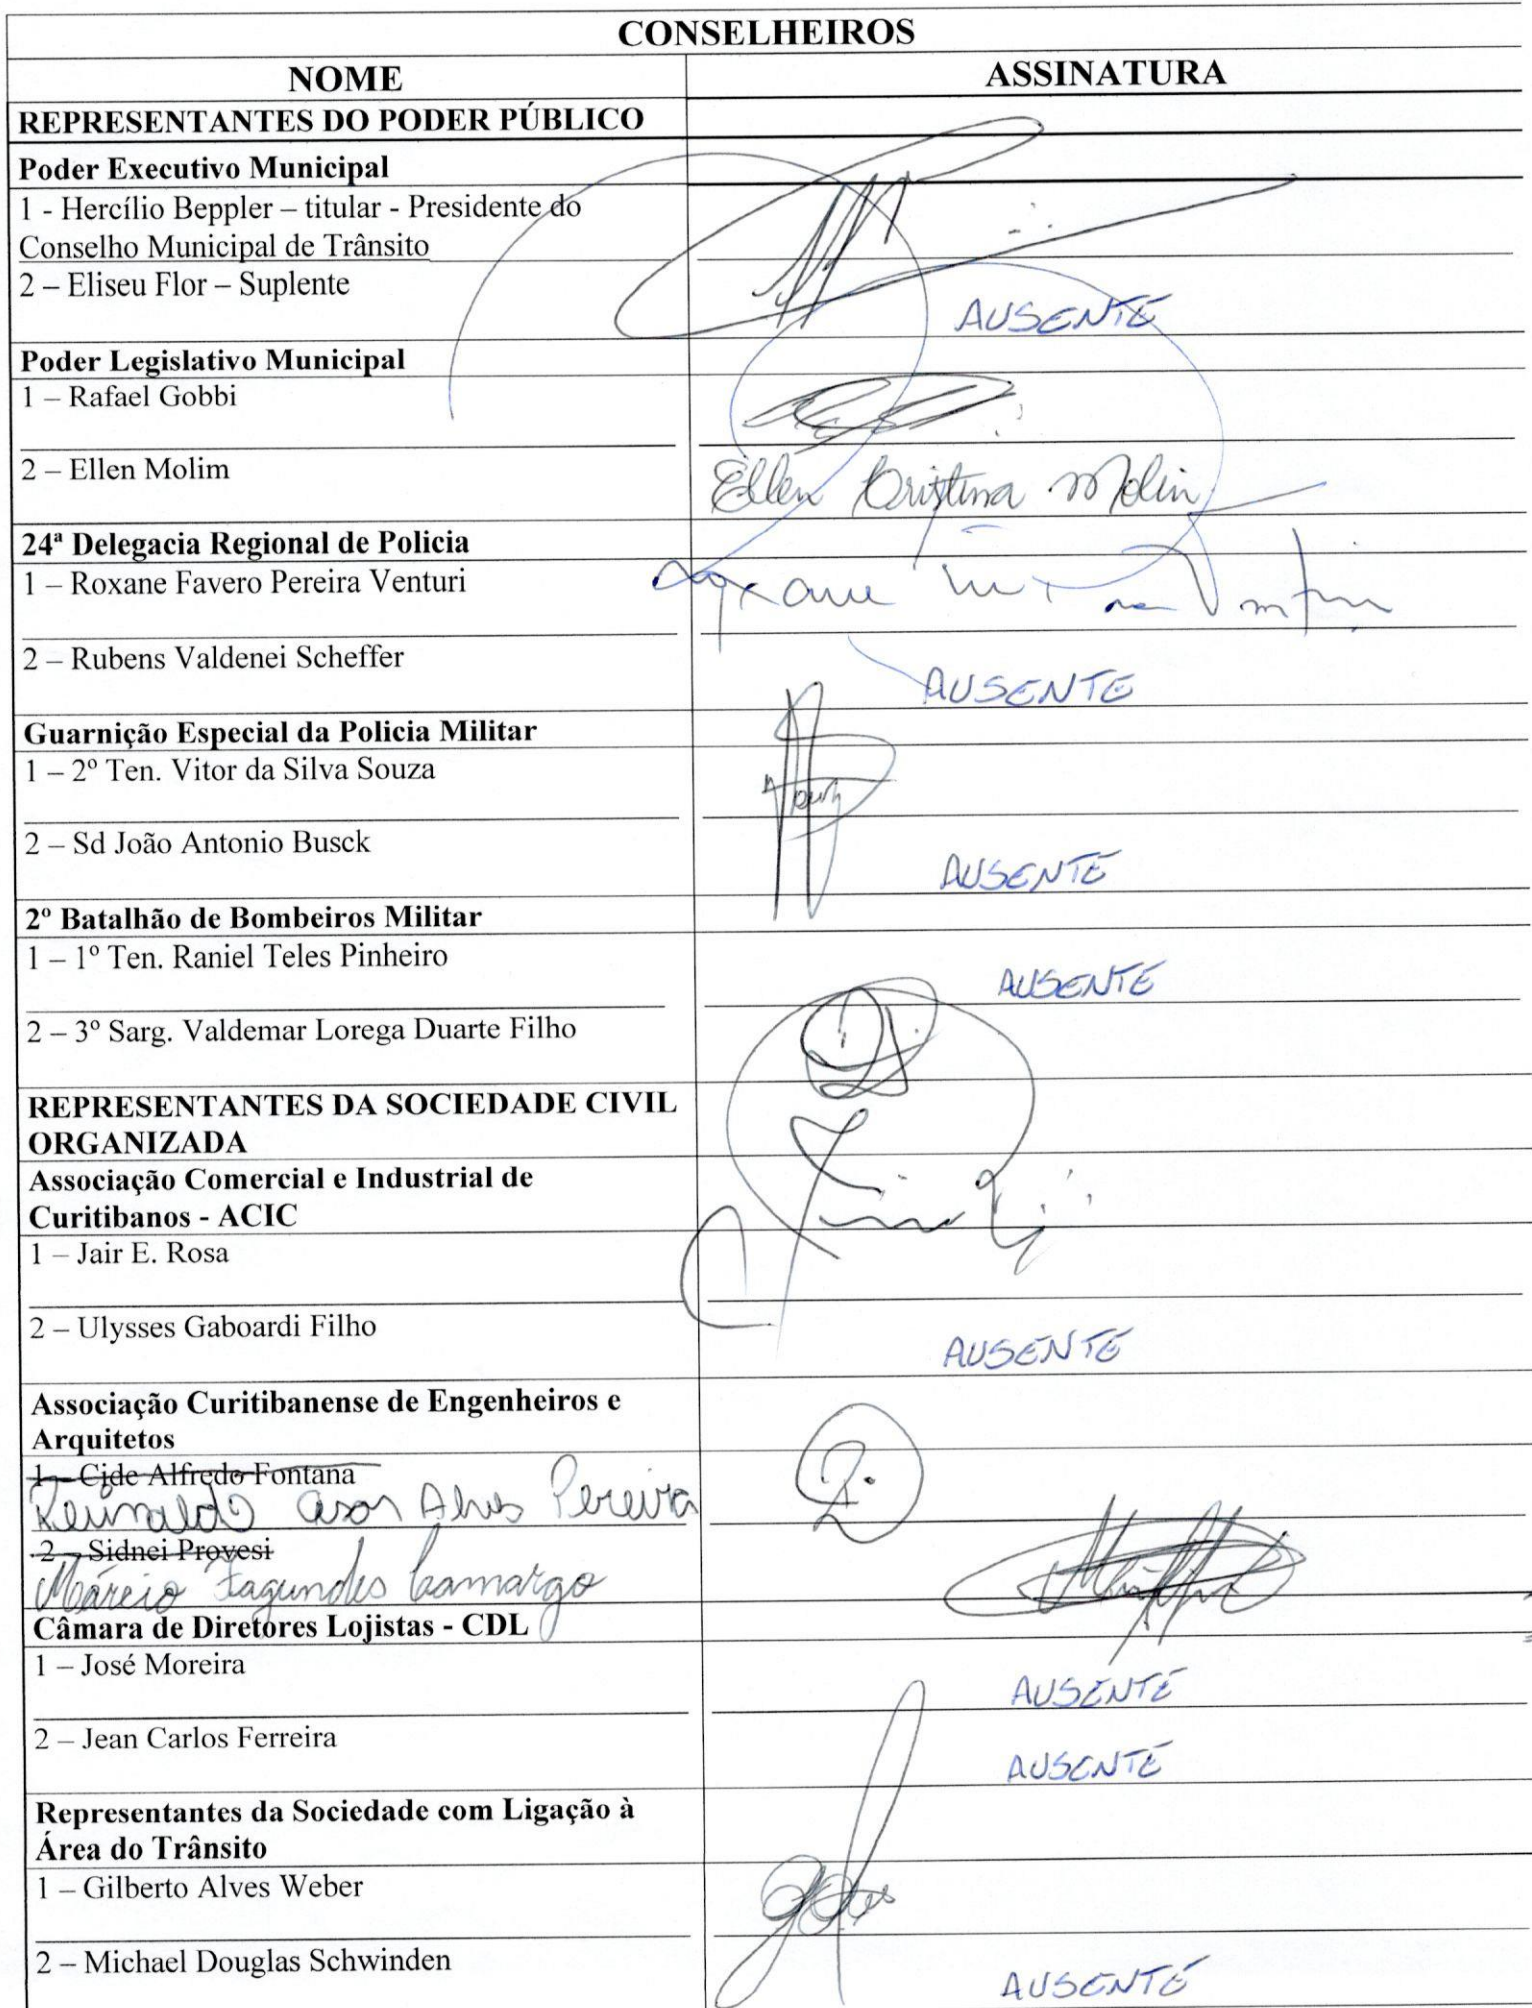 CONSELHEIROS
NOME ASSINATURA
REPRESENTANTES DO PODER PÚBLICO
Poder Executivo Municipal
1 - Hercílio Beppler – titular - Presidente do
Conselho Municipal de Trânsito
2 – Eliseu Flor – Suplente AUSENTE
Poder Legislativo Municipal
1 – Rafael Gobbi
2 – Ellen Molim Ellen Cristina Molin
24ª Delegacia Regional de Policia
1 – Roxane Favero Pereira Venturi
2 – Rubens Valdenei Scheffer AUSENTE
Guarnição Especial da Policia Militar
1 – 2º Ten. Vitor da Silva Souza
2 – Sd João Antonio Busck AUSENTE
2º Batalhão de Bombeiros Militar
1 – 1º Ten. Raniel Teles Pinheiro AUSENTE
2 – 3º Sarg. Valdemar Lorega Duarte Filho
REPRESENTANTES DA SOCIEDADE CIVIL
ORGANIZADA
Associação Comercial e Industrial de
Curitibanos - ACIC
1 – Jair E. Rosa
2 – Ulysses Gaboardi Filho AUSENTE
Associação Curitibanense de Engenheiros e
Arquitetos
1 – Cide Alfredo Fontana
Reinaldo Alves Pereira
2 – Sidnei Provesi
Márcio Fagundes Camargo
Câmara de Diretores Lojistas - CDL
1 – José Moreira AUSENTE
2 – Jean Carlos Ferreira AUSENTE
Representantes da Sociedade com Ligação à
Área do Trânsito
1 – Gilberto Alves Weber
2 – Michael Douglas Schwinden AUSENTE